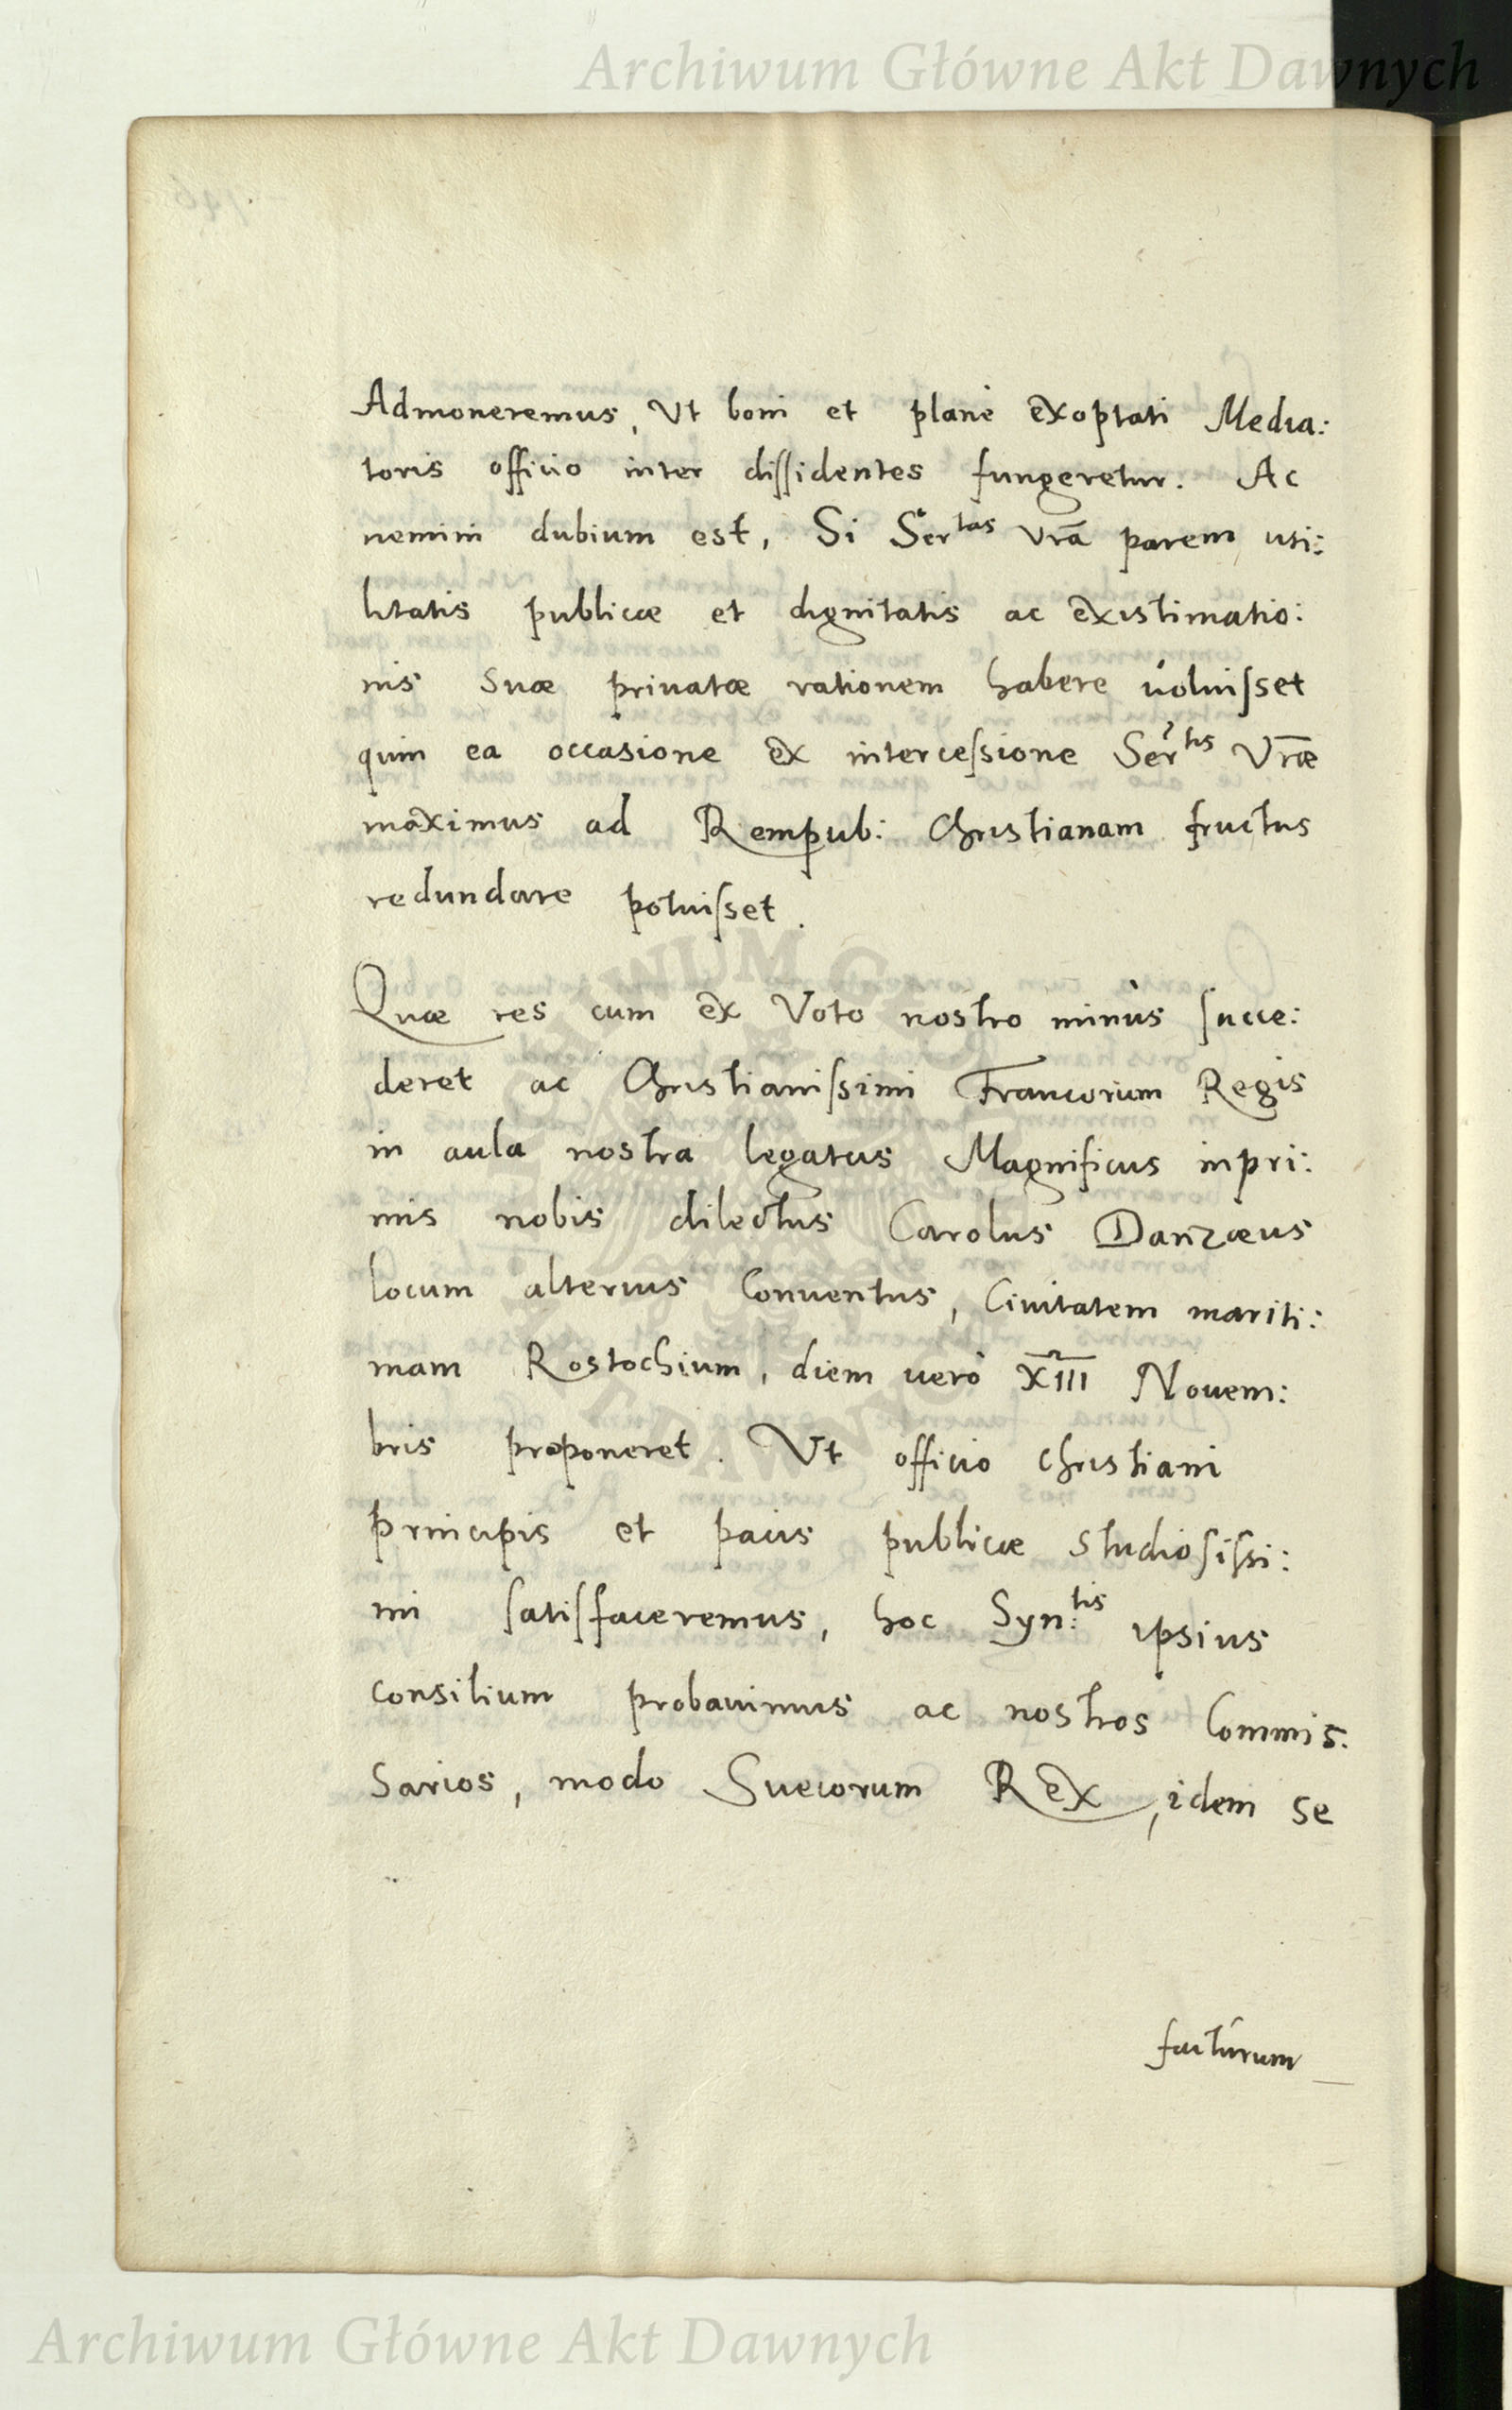 Archiwum Główne Akt Dawnych
Admoneremus, Vt boni et planè exoptati Media:
toris officio inter dissidentes fungeretur. Ac
nemini dubium est, Si Ser^tas Vrã parem uti:
litatis publicæ et dignitatis ac existimatio:
nis suæ priuatæ rationem habere uoluisset
quin ea occasione ex intercessione Ser^tis Vræ
maximus ad Rempub: Christianam fructus
redundare potuisset.
Quæ res cum ex Voto nostro minùs succe:
deret ac Christianissimi Francorum Regis
in aula nostra legatus Magnificus inpri:
mis nobis dilectus Carolus Danzæus
locum alterius Conuentus, Ciuitatem mariti:
mam Rostochium, diem uerò XIII Nouem:
bris proponeret. Vt officio Christiani
principis et pacis publicæ studiosissi:
mi satisfaceremus, hoc Syn:^tis ipsius
consilium probauimus ac nostros Commis:
sarios, modo Suecorum Rex, idem se
facturum
Archiwum Główne Akt Dawnych